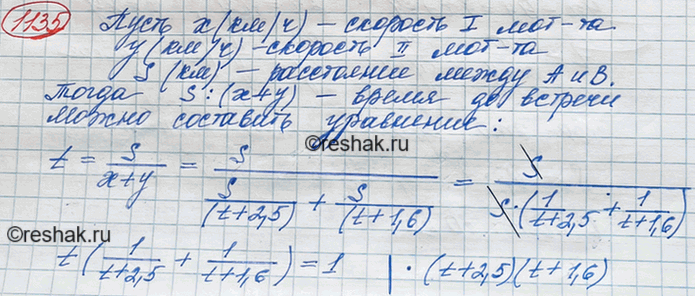 1135 Пусть x (км/ч) – скорость I мот-та
y (км/ч) – скорость II мот-та
S (км) – расстояние между A и B.
Тогда S : (x+y) – время до встречи
можно составить уравнения:
©reshak.ru
t = S/(x+y) = S/(S/(t+2,5) + S/(t+1,6)) = S/(S·(1/(t+2,5) + 1/(t+1,6)))
©reshak.ru
t(1/(t+2,5) + 1/(t+1,6)) = 1 | · (t+2,5)(t+1,6)